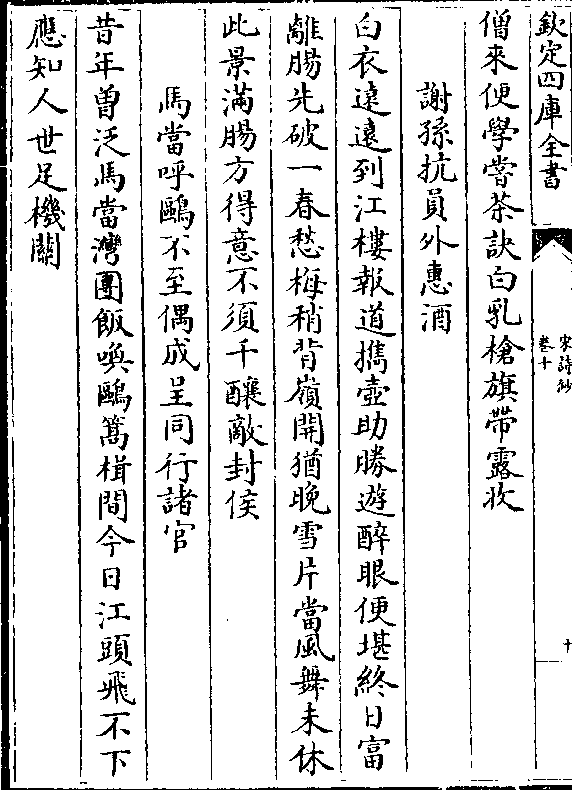 欽定四庫全書
宋詩鈔
卷十
十
僧來便學嘗茶訣白乳槍旗帶露收
謝孫抗員外惠酒
白衣遠遠到江樓報道攜壺助勝遊醉眼便堪終日富
離腸先破一春愁梅稍背嶺開猶晚雪片當風舞未休
此景滿腸方得意不須千釀敵封侯
馬當呼鷗不至偶成呈同行諸官
昔年曽泛馬當灣團飯喚鷗篙楫間今日江頭飛不下
應知人世足機關